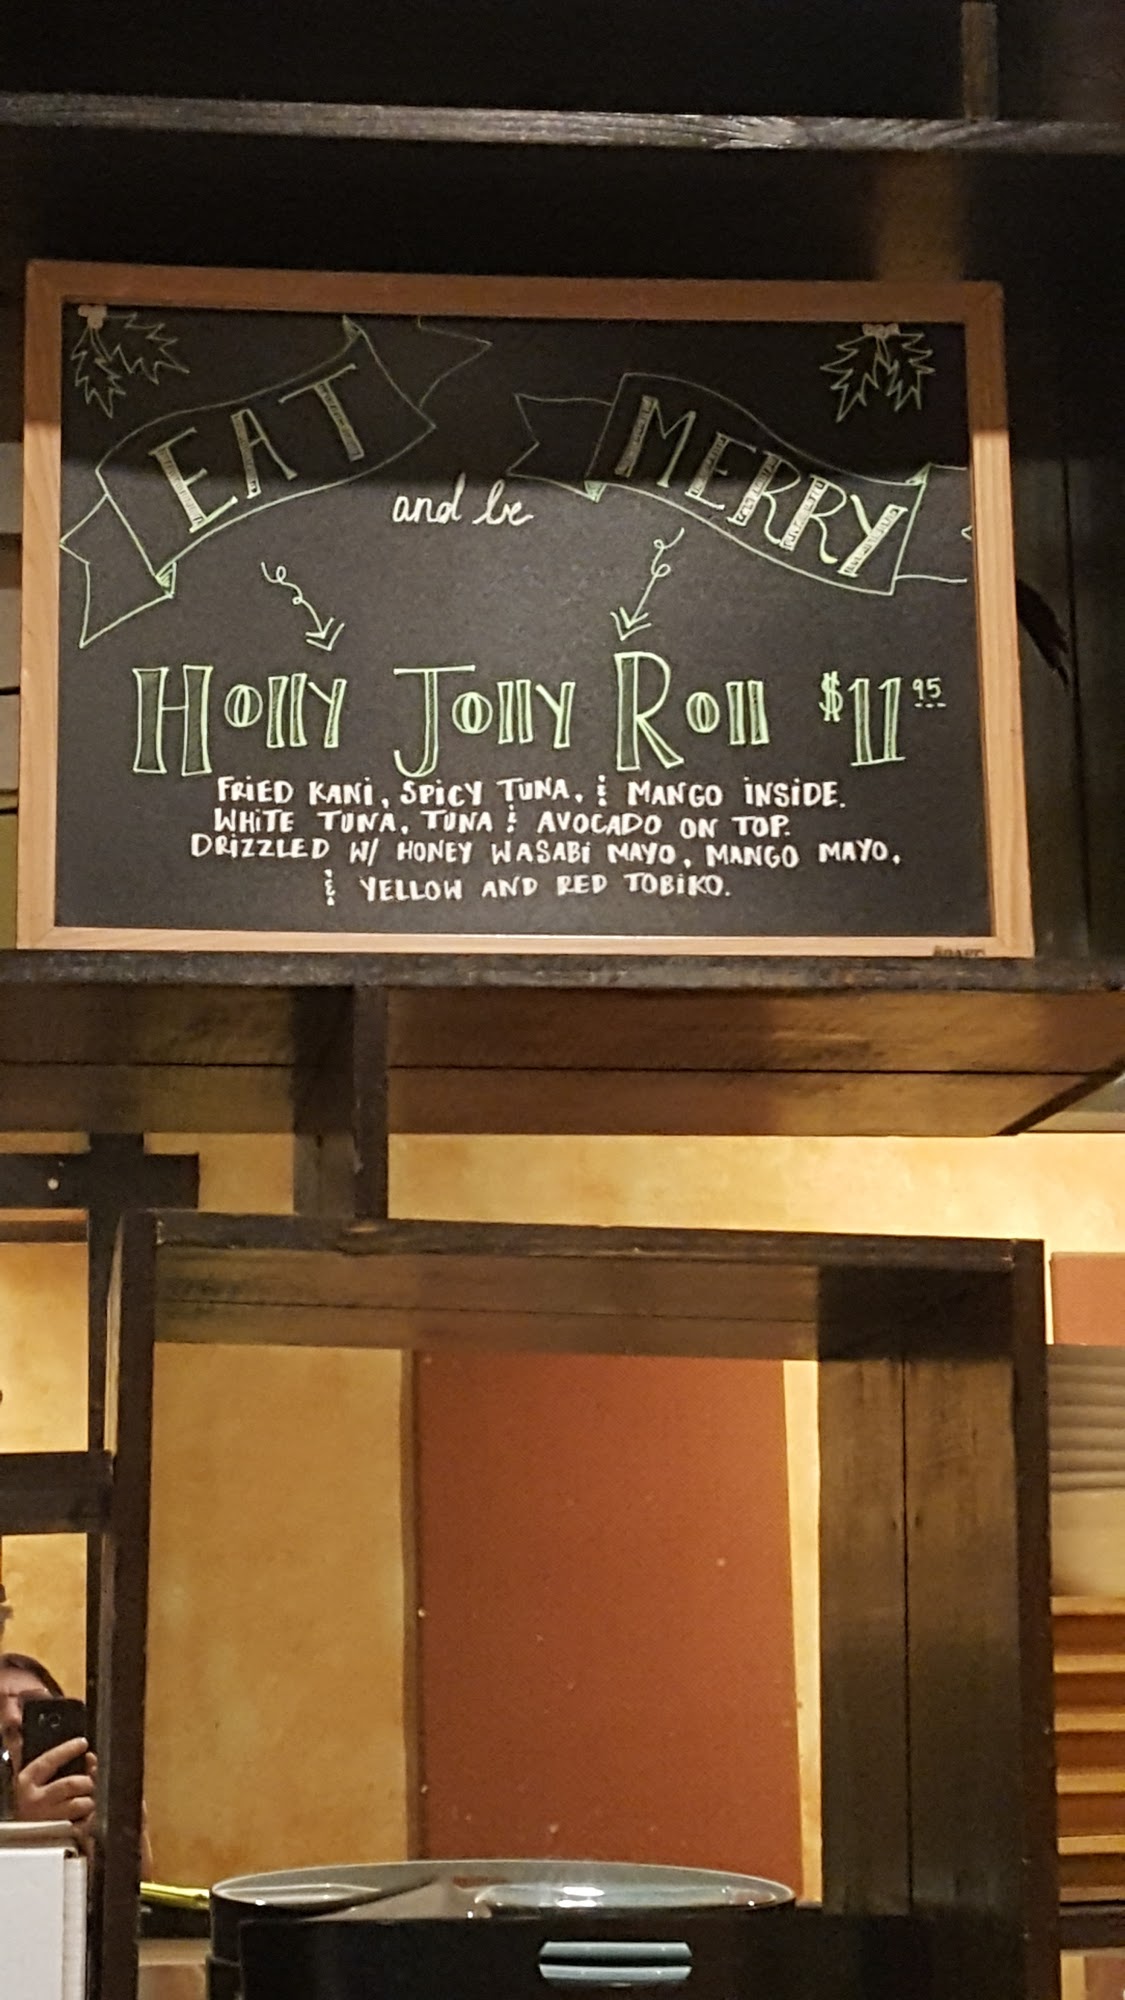 EAT
and be
MERRY
Holly Jolly Roll $11.95
FRiED KANi, SPiCY TUNA, & MANGO iNSiDE.
WHiTE TUNA, TUNA & AVOCADO ON TOP.
DRiZZLED W/ HONEY WASABi MAYO, MANGO MAYO,
& YELLOW AND RED TOBiKO.